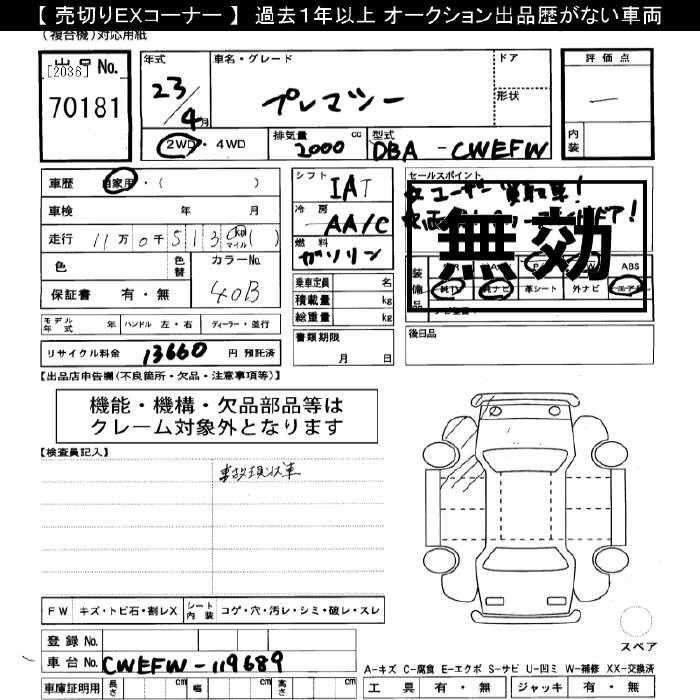 【 売切りEXコーナー 】 過去１年以上 オークション出品歴がない車両
(複合機)対応用紙
出品No.
[2036]
70181
年式
23/4月
車名・グレード
プレマシー
ドア
形状
評価点
―
内装
2WD・4WD
排気量
2000 cc
型式
DBA - CWEFW
車歴 自家用・( )
車検 年 月
走行 11万0千513 km マイル ( )
色
色替
カラーNo.
40B
保証書 有・無
モデル年式 年 ハンドル 左・右 ディーラー・並行
リサイクル料金 13660 円 預託済
シフト
IAT
冷房
AA/C
燃料
ガソリン
乗車定員 名
積載量 kg
総重量 kg
書類期限
月 日
セールスポイント
ユーザー買取車!
ドア!
無効
装備品
ABS
純TV
純ナビ
革シート
外ナビ
エアB
後日品
【出品店申告欄(不良箇所・欠品・注意事項等)】
機能・機構・欠品部品等は
クレーム対象外となります
【検査員記入】
事故現状車
FW キズ・トビ石・割レX
シート内装 コゲ・穴・汚レ・シミ・破レ・スレ
登録No.
車台No. CWEFW-119689
車庫証明用 長さ cm 幅 cm 高さ cm
スペア
A-キズ C-腐食 E-エクボ S-サビ U-凹ミ W-補修 XX-交換済
工具 有・無 ジャッキ 有・無